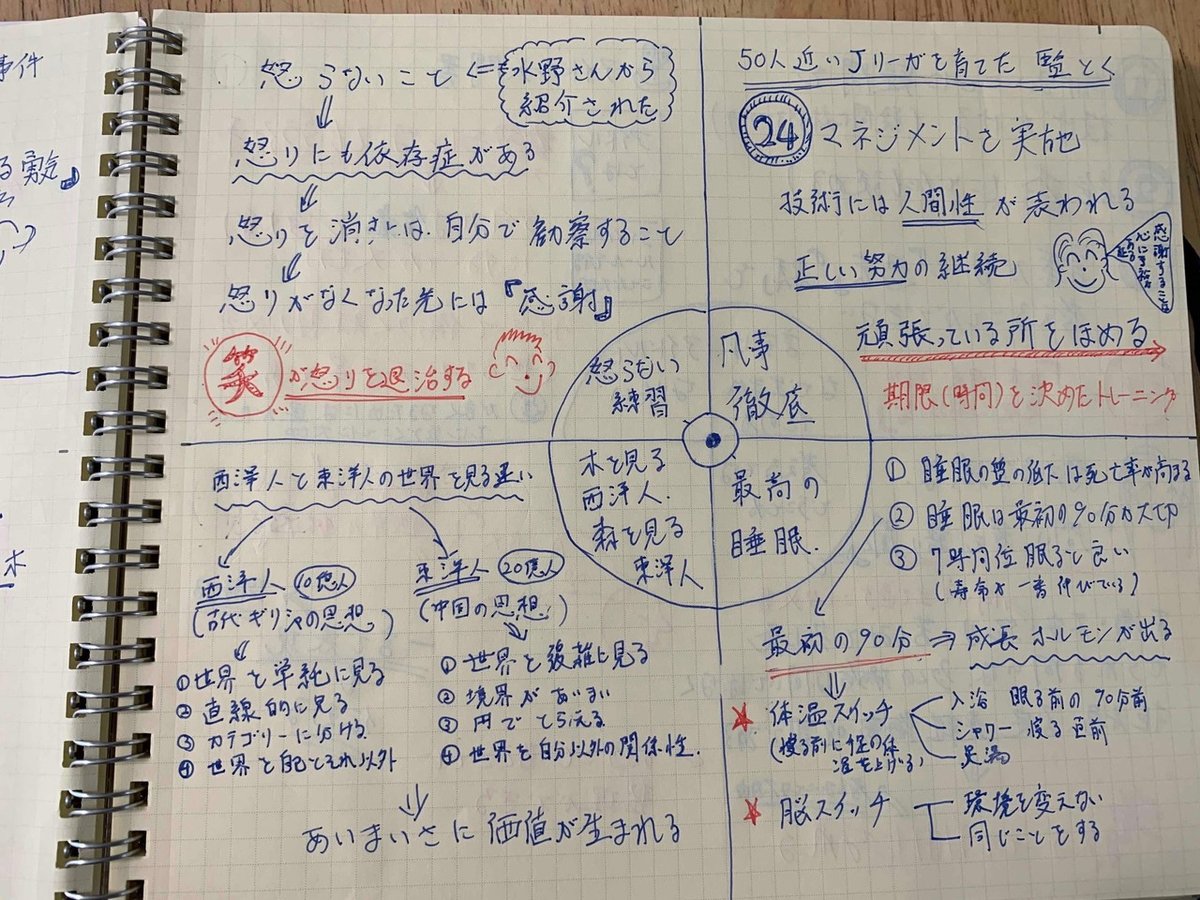 事件
る勇気』
木
怒らないこと ⇐ 水野さんから
紹介された
⇓
怒りにも依存症がある
⇓
怒りを消すには、自分で観察すること
⇓
怒りがなくなった先には『感謝』
笑 が怒りを退治する
50人近いJリーガを育てた 監とく
24 マネジメントを実施
技術には人間性が表われる
正しい努力の継続
感謝すること
心に余裕が
頑張っている所をほめる
期限(時間)を決めたトレーニング
怒らない
練習
凡事
徹底
木を見る
西洋人.
森を見る
東洋人
最高の
睡眠.
西洋人と東洋人の世界を見る違い
西洋人 10億人
(古代ギリシャの思想)
①世界を単純に見る
②直線的に見る
③カテゴリーに分ける
④世界を自己とそれ以外
東洋人 20億人
(中国の思想)
①世界を複雑に見る
②境界があいまい
③円でとらえる
④世界を自分以外の関係性.
⇓
あいまいさに価値が生まれる
① 睡眠の量の低下は死亡率が高まる
② 睡眠は最初の90分が大切
③ 7時間位眠ると良い
(寿命が一番伸びている)
最初の90分 ⇒ 成長ホルモンが出る
⇓
★ 体温スイッチ
(寝る前に の体
温を上げる)
入浴 眠る前の90分前
シャワー 寝る直前
足湯
★ 脳スイッチ
環境を変えない
同じことをする